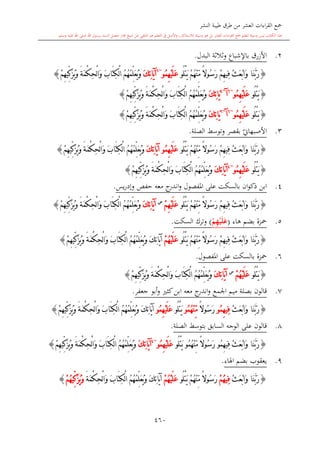 جمع القراءات العشر من طرق طيبة النشر
٢. الأزرق بالإشباع وثلاثة البدل.
﴿ رَبَّنَا وَابْعَثْ فِيهِمْ رَسُولًا مِّنْهُمْ يَتْلُو عَلَيْهِمُو ءَايَاتِكَ وَيُعَلِّمُهُمُ الْكِتَابَ وَالْحِكْمَةَ وَيُزَكِّيهِمْ ﴾
﴿ يَتْلُو عَلَيْهِمُو ءَايَاتِكَ وَيُعَلِّمُهُمُ الْكِتَابَ وَالْحِكْمَةَ وَيُزَكِّيهِمْ ﴾
﴿ يَتْلُو عَلَيْهِمُو ءَايَاتِكَ وَيُعَلِّمُهُمُ الْكِتَابَ وَالْحِكْمَةَ وَيُزَكِّيهِمْ ﴾
٣. الأصبهاني بقصر وتوسط الصلة.
﴿ رَبَّنَا وَابْعَثْ فِيهِمْ رَسُولًا مِّنْهُمْ يَتْلُو عَلَيْهِمُو ءَايَاتِكَ وَيُعَلِّمُهُمُ الْكِتَابَ وَالْحِكْمَةَ وَيُزَكِّيهِمْ ﴾
﴿ يَتْلُو عَلَيْهِمُو ءَايَاتِكَ وَيُعَلِّمُهُمُ الْكِتَابَ وَالْحِكْمَةَ وَيُزَكِّيهِمْ ﴾
٤. ابن ذكوان بالسكت على المفصول واندرج معه حفص وإدريس.
﴿ رَبَّنَا وَابْعَثْ فِيهِمْ رَسُولًا مِّنْهُمْ يَتْلُو عَلَيْهِمْ ءَايَاتِكَ وَيُعَلِّمُهُمُ الْكِتَابَ وَالْحِكْمَةَ وَيُزَكِّيهِمْ ﴾
٥. حمزة بضم هاء (عَلَيْهُمْ) وترك السكت.
﴿ يَتْلُو عَلَيْهُمْ ءَايَاتِكَ وَيُعَلِّمُهُمُ الْكِتَابَ وَالْحِكْمَةَ وَيُزَكِّيهِمْ ﴾
٦. حمزة بالسكت على المفصول.
﴿ يَتْلُو عَلَيْهُمْ ءَايَاتِكَ وَيُعَلِّمُهُمُ الْكِتَابَ وَالْحِكْمَةَ وَيُزَكِّيهِمْ ﴾
٧. قالون بصلة ميم الجمع واندرج معه ابن كثير وأبو جعفر.
﴿ رَبَّنَا وَابْعَثْ فِيهِمُو رَسُولًا مِّنْهُمُو يَتْلُو عَلَيْهِمُو ءَايَاتِكَ وَيُعَلِّمُهُمُ الْكِتَابَ وَالْحِكْمَةَ وَيُزَكِّيهِمْ ﴾
٨. قالون على الوجه السابق بتوسط الصلة.
﴿ رَبَّنَا وَابْعَثْ فِيهِمُو رَسُولًا مِّنْهُمُو يَتْلُو عَلَيْهِمُو ءَايَاتِكَ وَيُعَلِّمُهُمُ الْكِتَابَ وَالْحِكْمَةَ وَيُزَكِّيهِمْ ﴾
٩. يعقوب بضم الهاء.
﴿ رَبَّنَا وَابْعَثْ فِيهُمْ رَسُولًا مِّنْهُمْ يَتْلُو عَلَيْهُمْ ءَايَاتِكَ وَيُعَلِّمُهُمُ الْكِتَابَ وَالْحِكْمَةَ وَيُزَكِّيهُمْ ﴾
٤٦٠